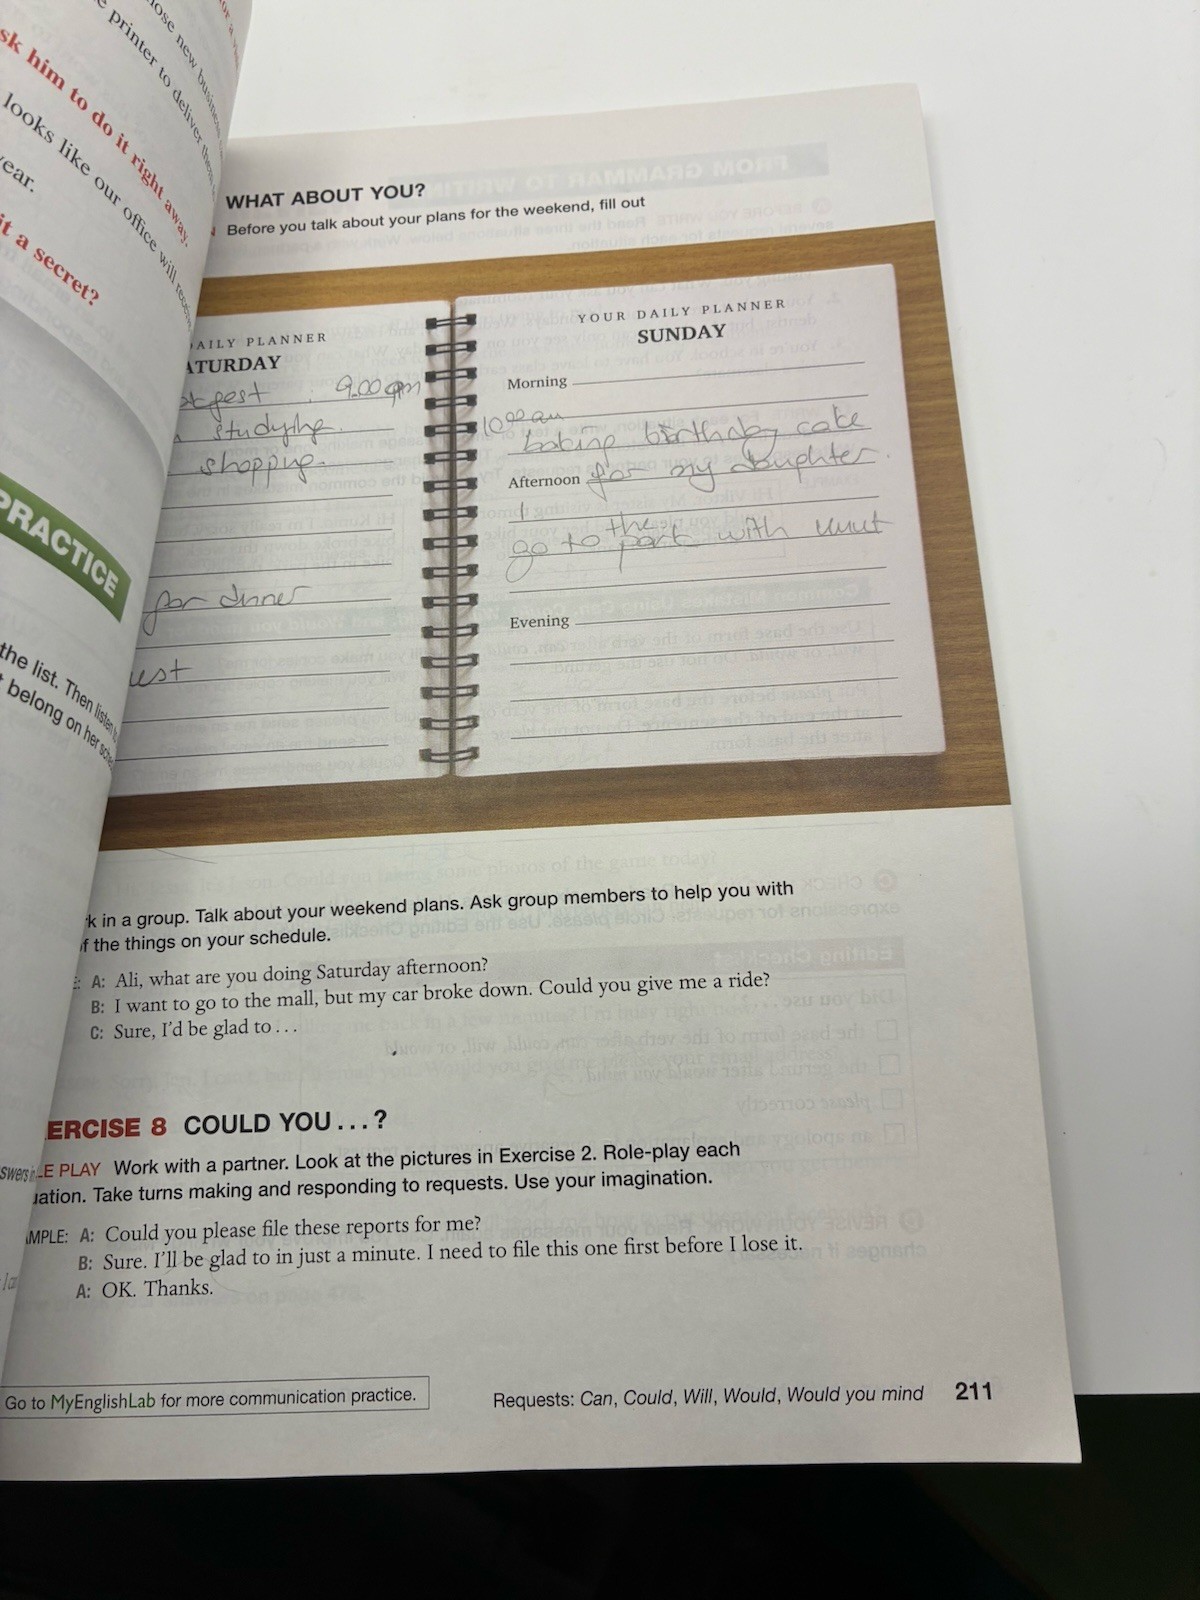 sk him to do it right away.
looks like our office will
year.
it a secret?
PRACTICE
the list. Then listen
belong on her
WHAT ABOUT YOU?
Before you talk about your plans for the weekend, fill out
DAILY PLANNER
SATURDAY
9.00 am
studying.
shopping.
for dinner
YOUR DAILY PLANNER
SUNDAY
Morning
10:00 am
baking birthday cake
Afternoon for my daughter.
the
go to park with
Evening
k in a group. Talk about your weekend plans. Ask group members to help you with
of the things on your schedule.
A: Ali, what are you doing Saturday afternoon?
B: I want to go to the mall, but my car broke down. Could you give me a ride?
C: Sure, I'd be glad to...
ERCISE 8 COULD YOU...?
LE PLAY Work with a partner. Look at the pictures in Exercise 2. Role-play each
uation. Take turns making and responding to requests. Use your imagination.
MPLE: A: Could you please file these reports for me?
B: Sure. I'll be glad to in just a minute. I need to file this one first before I lose it.
A: OK. Thanks.
Go to MyEnglishLab for more communication practice.
Requests: Can, Could, Will, Would, Would you mind 211